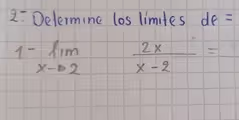 2- Determine los límites de =
1- lim 2x =
x→2 x-2